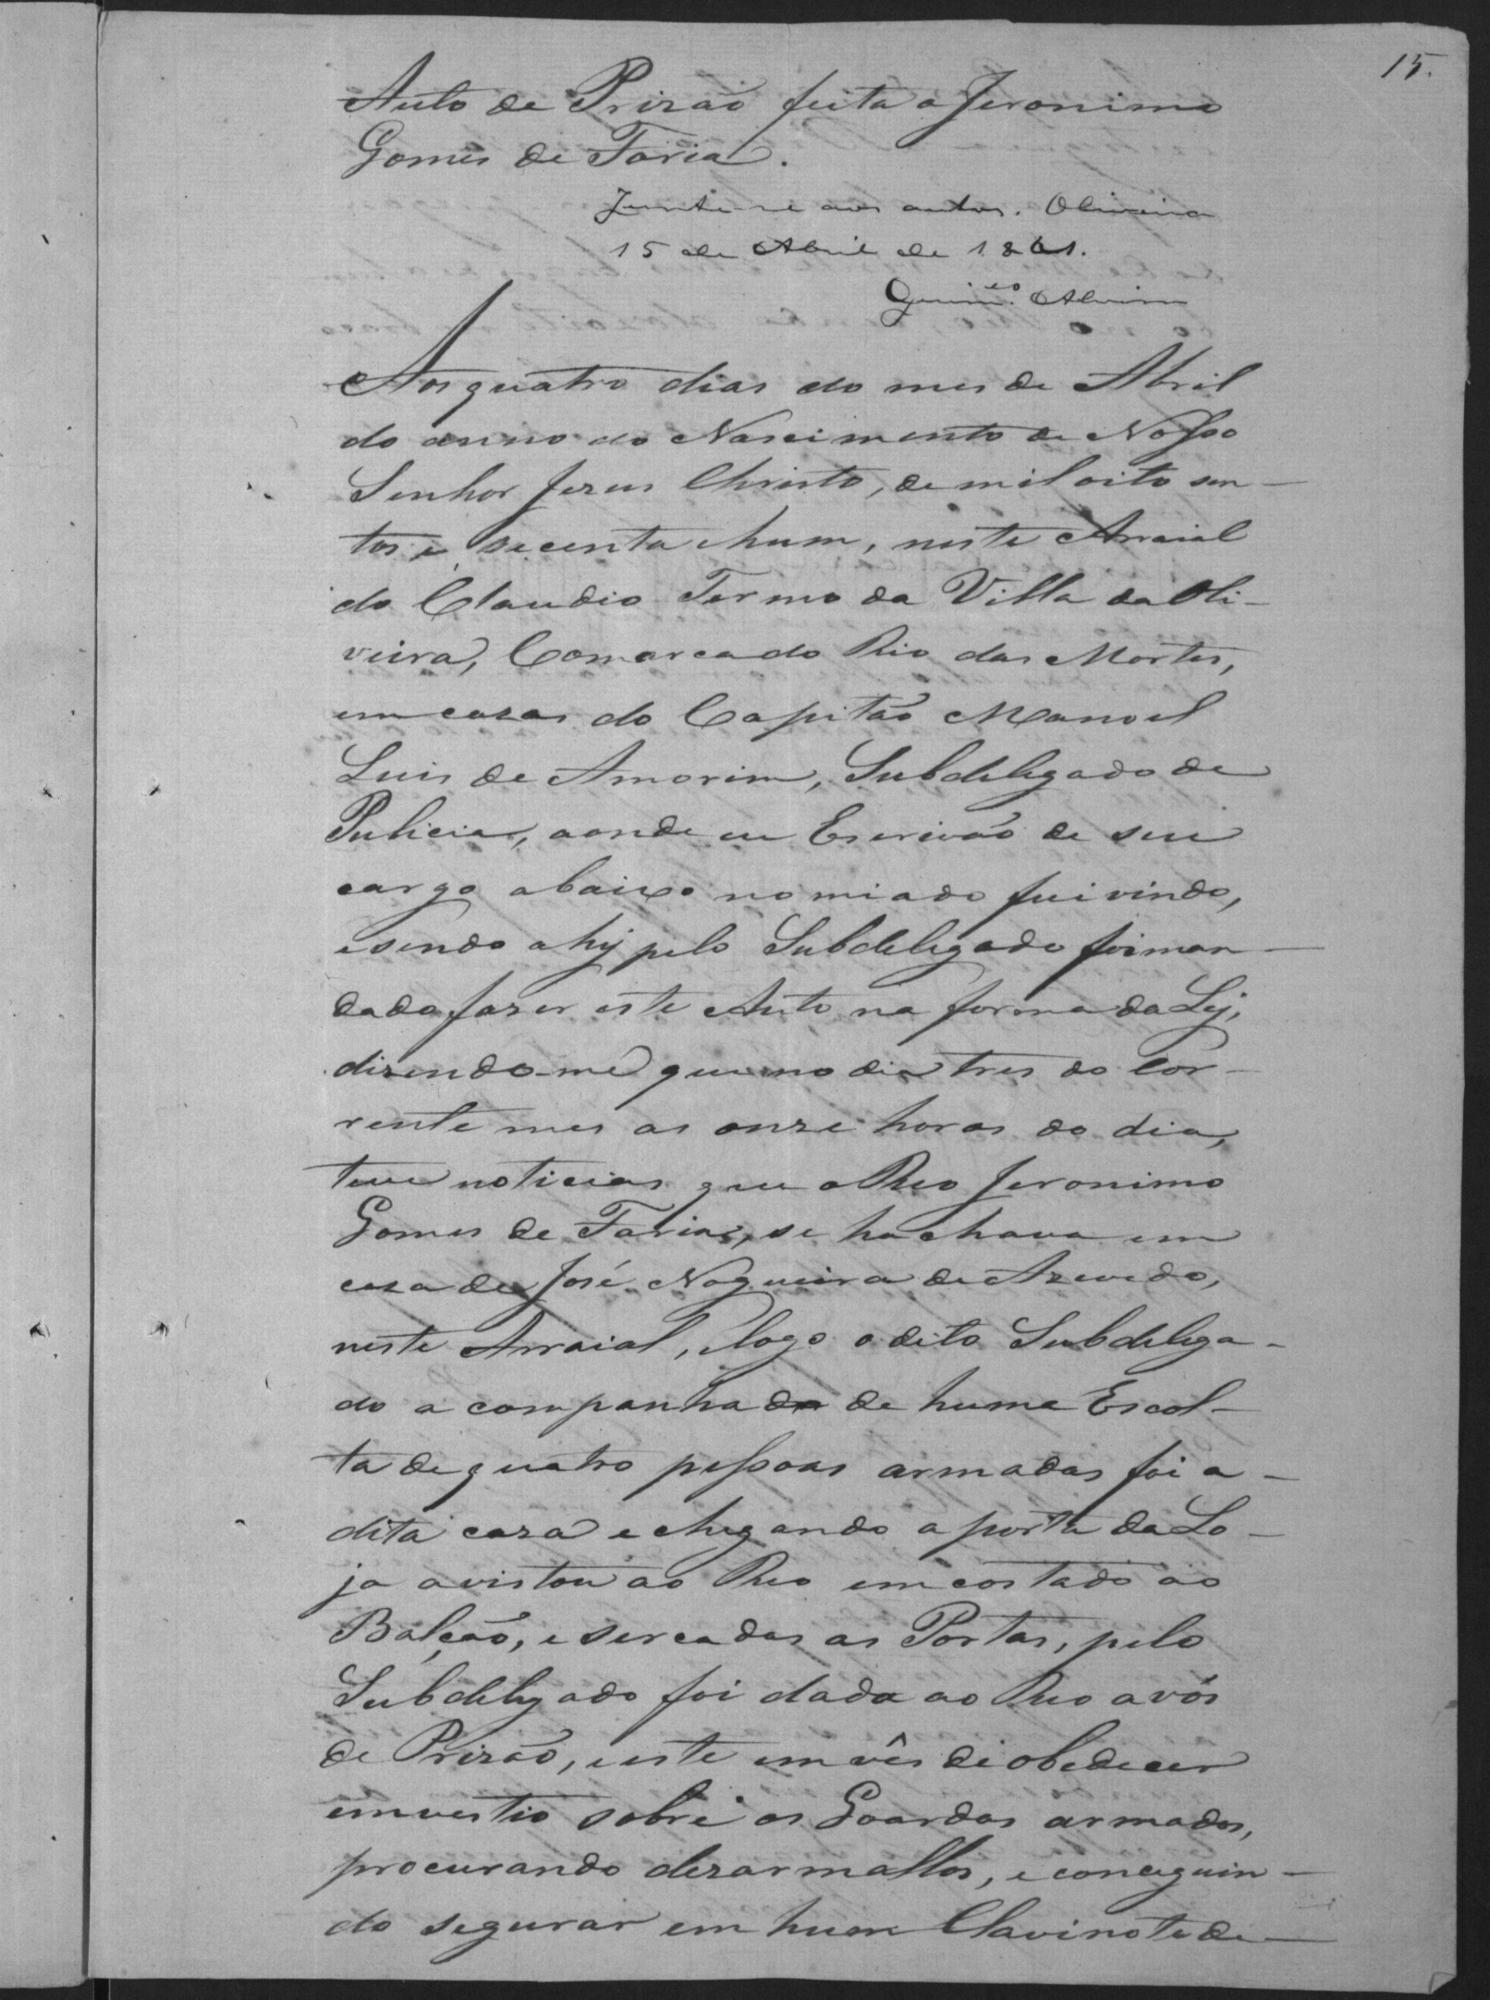 15.
Auto de Prizaõ feita a Jeronimo
Gomes de Faria.
Junte-se aos autos. Oliveira
15 de Abril de 1861.
Alvim
Aos quatro dias do mes de Abril
do anno do Nascimento de Nosso
Senhor Jezus Christo, de mil oito sen-
tos e secenta e hum, neste Arraial
do Claudio Termo da Villa da Oli-
veira, Comarca do Rio das Mortes,
em casas do Capitaõ Manoel
Luis de Amorim, Subdelegado de
Pulicia, aonde eu Escrivaõ de seu
cargo abaixo nomiado fui vindo,
e sendo ahy pelo Subdelegado foi man-
dado faser este Auto na forma da Ley,
disendo-me que no dia tres do Cor-
rente mes as onze horas do dia,
teve noticias que o Reo Jeronimo
Gomes de Faria, se hachava em
casa de José Nogueira de Azevedo,
neste Arraial, e logo o dito Subdelega-
do acompanhado de huma Escol-
ta de quatro pessoas armadas foi a-
dita caza e chegando a porta da Lo-
ja avistou ao Reo emcostado ao
Balcaõ, e sercadas as Portas, pelo
Subdelegado foi dada ao Reo a vós
de Prizaõ, e este em vês de obedecer
emvestio sobre os Goardas armados,
procurando dezarmallos, e conceguin-
do segurar em hum Clavinote de-